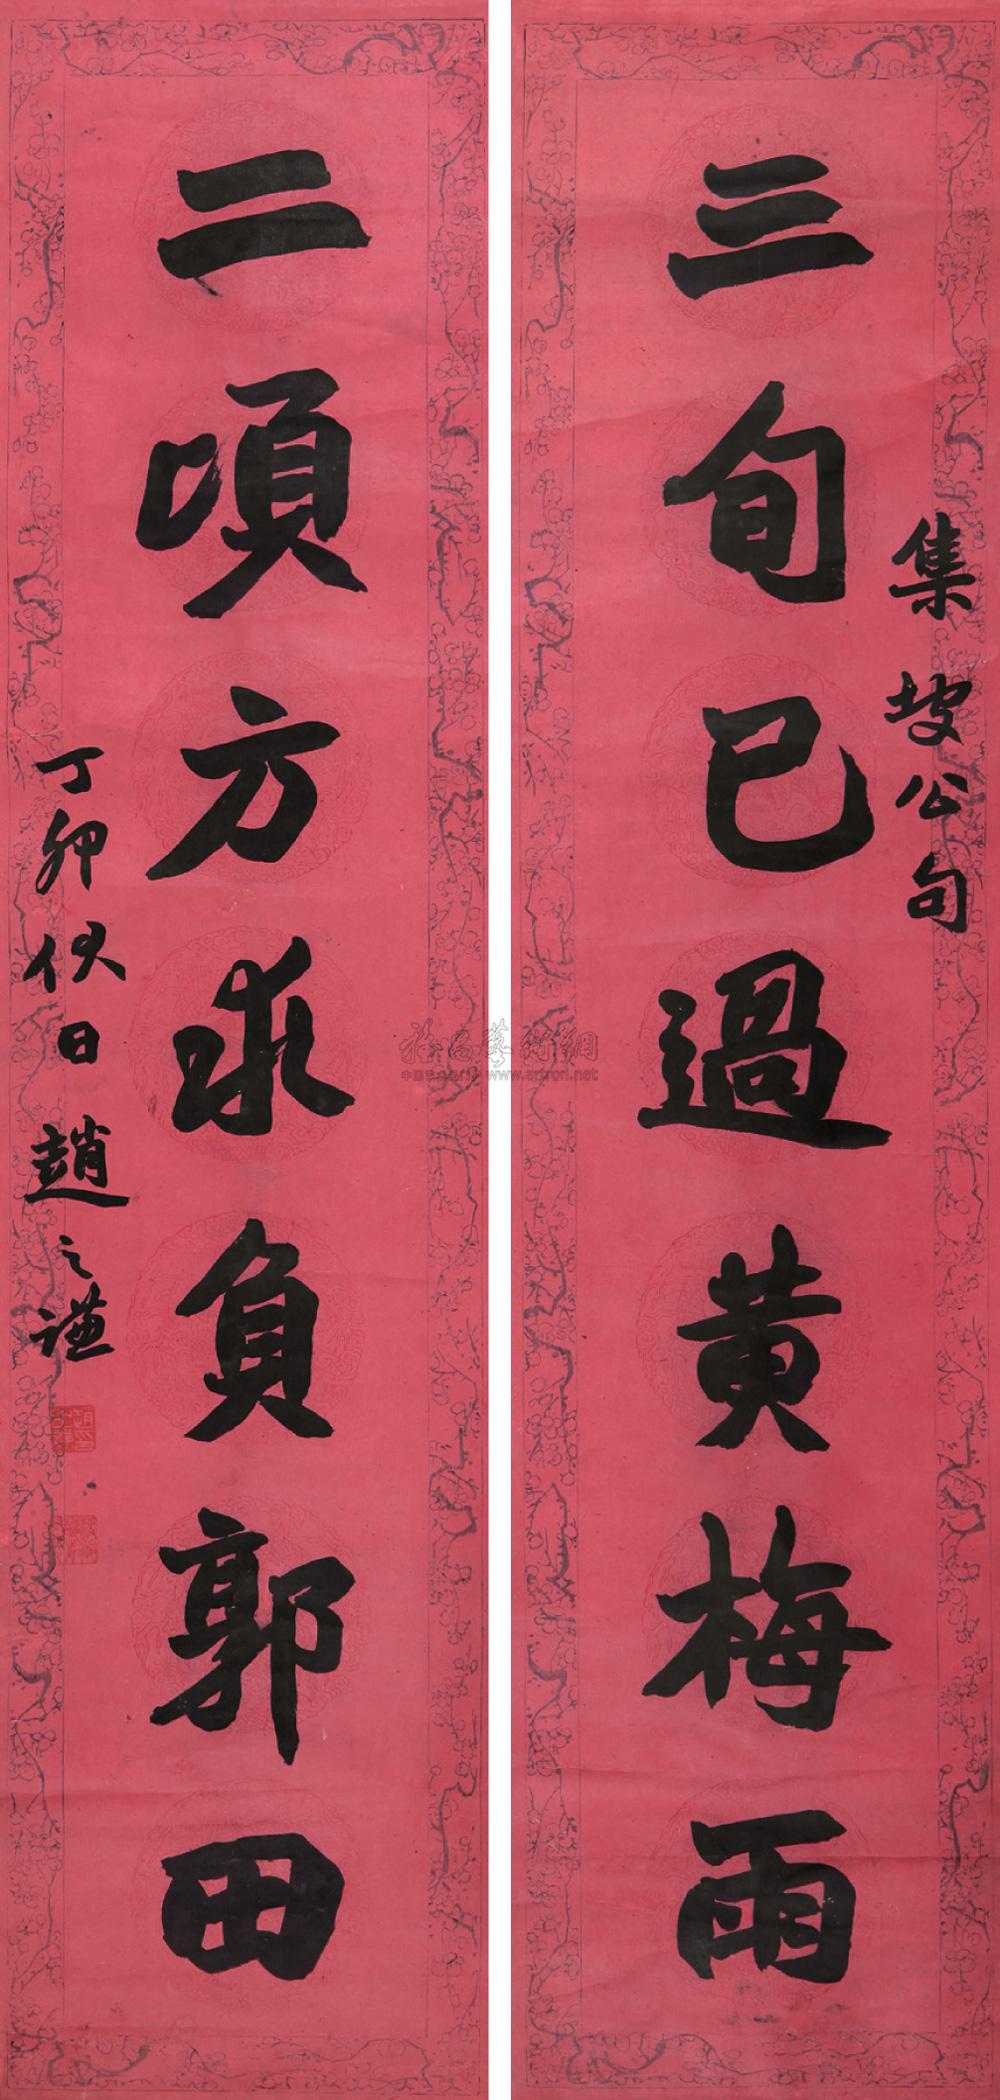 三旬已過黃梅雨
集坡公句
二頃方求負郭田
丁卯伏日趙之謙
www.artron.net